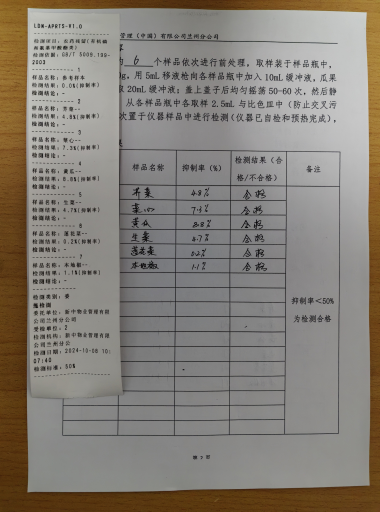 LDN-APRTS-V1.0
检测项目: 农药残留(有机磷
和氨基甲酸酯类)
检测依据: GB/T 5009.199-
2003
1
样品名称: 参考样本
检测结果: 0.0%(抑制率)
检测结论: -
2
样品名称: 芥菜--
检测结果: 4.8%(抑制率)
检测结论: -
3
样品名称: 菜心--
检测结果: 7.3%(抑制率)
检测结论: -
4
样品名称: 黄瓜--
检测结果: 8.8%(抑制率)
检测结论: -
5
样品名称: 生菜--
检测结果: 4.7%(抑制率)
检测结论: -
6
样品名称: 莲花菜--
检测结果: 0.2%(抑制率)
检测结论: -
7
样品名称: 本地椒--
检测结果: 1.1%(抑制率)
检测结论: -
检测类别: 委
托检测
委托单位: 新中物业管理有限
公司兰州分公司
受检单位: 2
检测机构: 新中物业管理有限公
司兰州分公
检测日期: 2024-10-08 10:
07:40
检测标准: 50%
管理(中国)有限公司兰州分公司
6 个样品依次进行前处理。取样装于样品瓶中,
用 5mL 移液枪向各样品瓶中加入 10mL 缓冲液,瓜果
取 20mL 缓冲液;盖上盖子后均匀摇荡 50-60 次,然后静
从各样品瓶中各取样 2.5mL 与比色皿中(防止交叉污
次置于仪器样品中进行检测(仪器已自检和预热完成),
样品名称 抑制率(%) 检测结果(合格/不合格) 备注
芥菜 4.8% 合格
菜心 7.3% 合格
黄瓜 8.8% 合格
生菜 4.7% 合格
莲花菜 0.2% 合格
本地椒 1.1% 合格
抑制率<50%
为检测合格
第 2 页